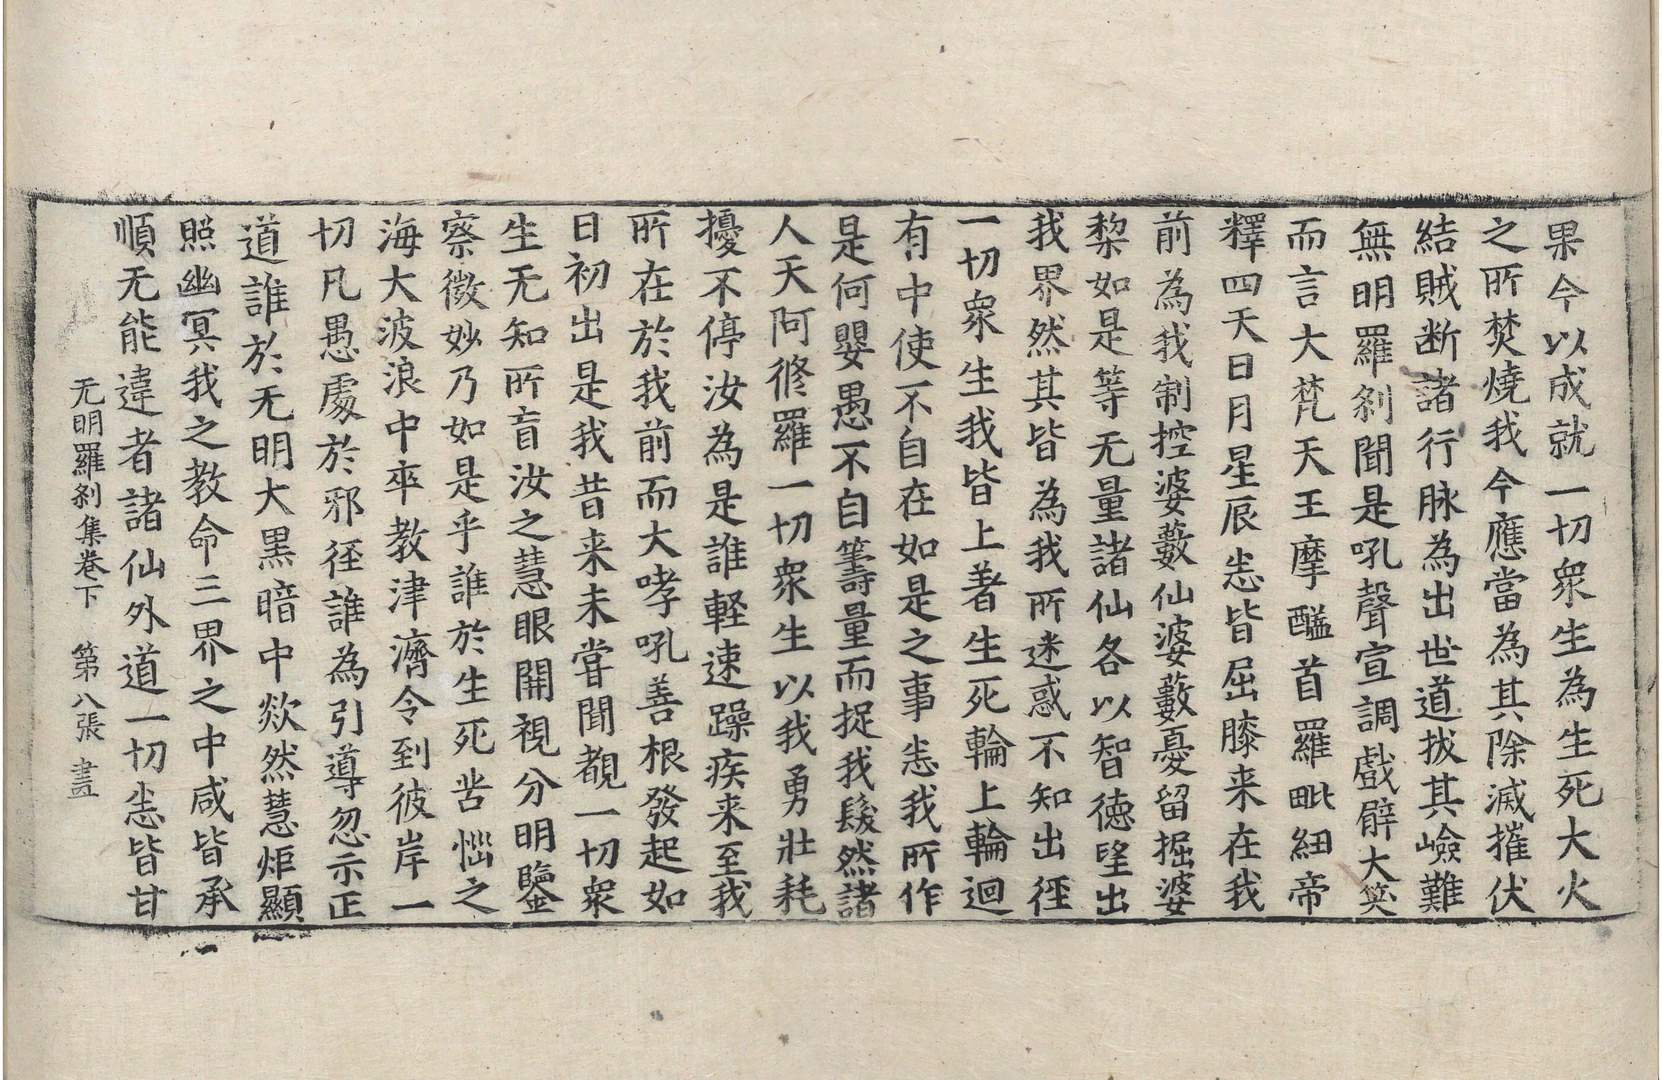 果今以成就一切衆生為生死大火
之所焚燒我今應當為其除滅摧伏
結賊断諸行脉為出世道拔其嶮難
無明羅刹聞是吼聲宣調戲辟大笑
而言大梵天王摩醯首羅毗紐帝
釋四天日月星辰恙皆屈膝来在我
前為我制控婆藪仙婆藪憂留掘婆
棃如是等无量諸仙各以智德望出
我界然其皆為我所迷惑不知出徑
一切衆生我皆上著生死輪上輪迴
有中使不自在如是之事恙我所作
是何嬰愚不自籌量而捉我髮然諸
人天阿脩羅一切衆生以我勇壯耗
擾不停汝為是誰輕速躁疾来至我
所在於我前而大哮吼善根發起如
日初出是我昔来未甞聞覩一切衆
生无知所盲汝之慧眼開視分明鑒
察微妙乃如是乎誰於生死苦惱之
海大波浪中卒教津濟令到彼岸一
切凡愚處於邪徑誰為引導忽示正
道誰於无明大黑暗中欻然慧炬顯
照幽冥我之教命三界之中咸皆承
順无能違者諸仙外道一切恙皆甘
无明羅刹集卷下　第八張　晝